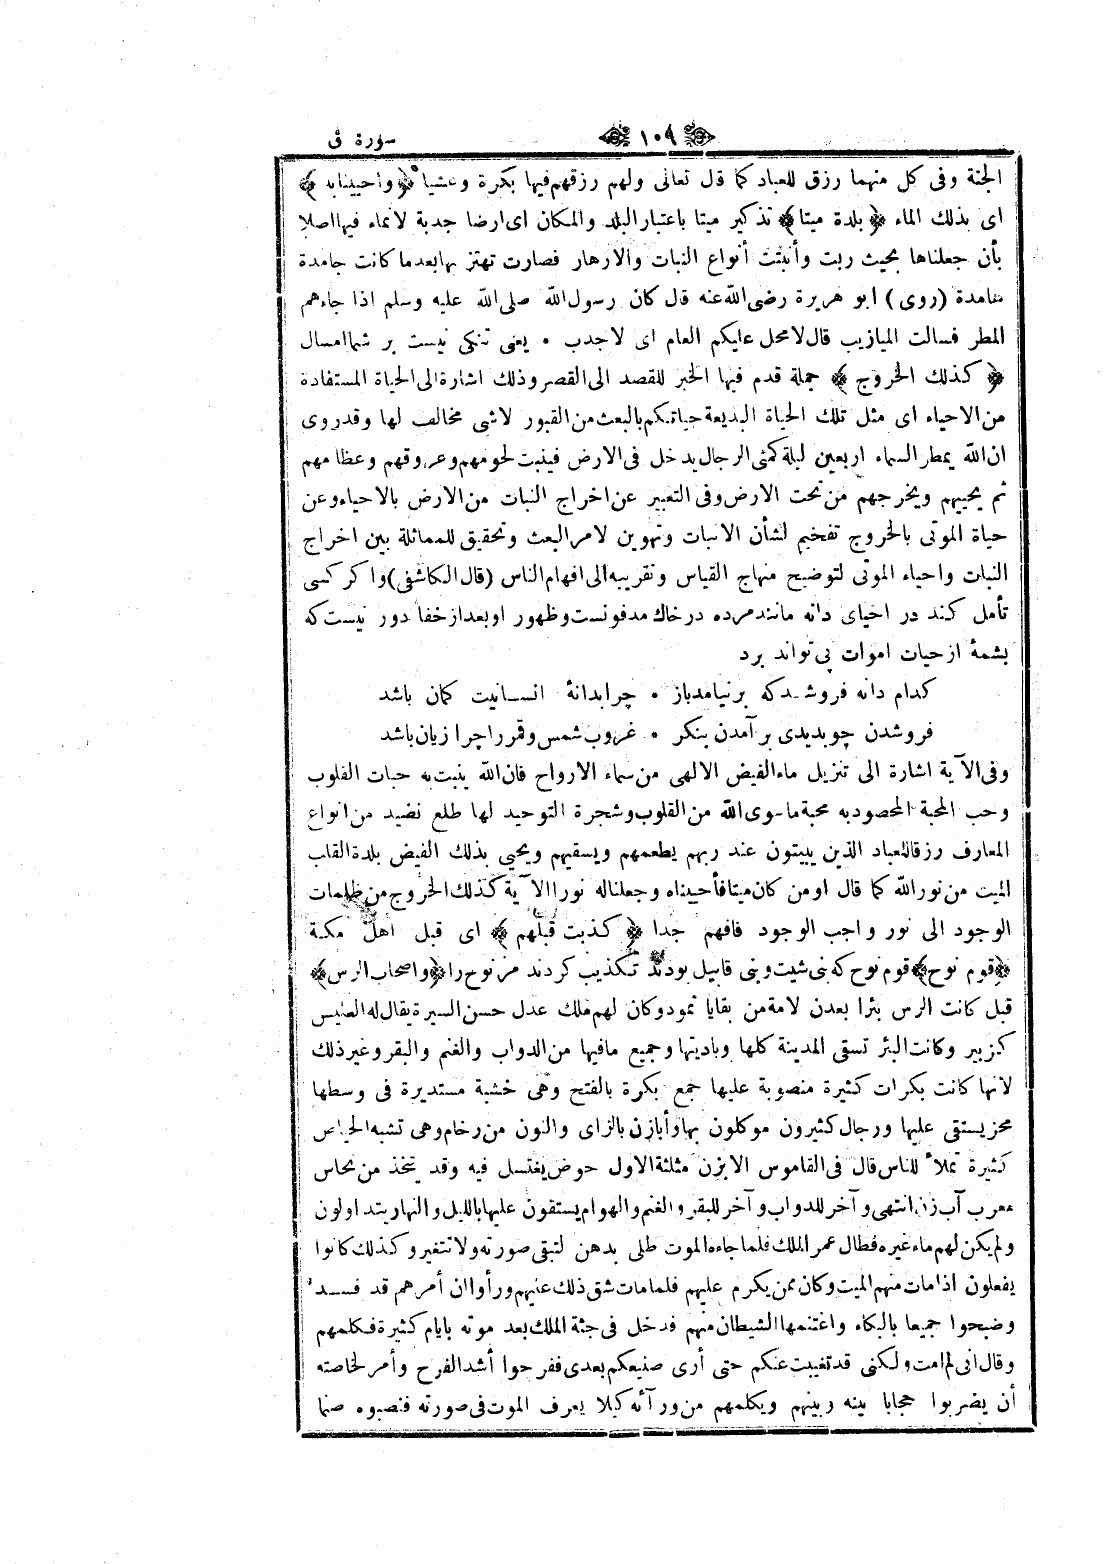 سورة ق
١٠٩
الجنة وفى كل منهما رزق للعباد كما قال تعالى ولهم رزقهم فيها بكرة وعشيا ﴿واحيينا به﴾
اى بذلك الماء ﴿بلدة ميتا﴾ تذكير ميتا باعتبار البلد والمكان اى ارضا جدبة لا نماء فيها اصلا
بأن جعلناها بحيث ربت وأنبتت أنواع النبات والازهار فصارت تهتز بها بعد ما كانت جامدة
هامدة (روى) ابو هريرة رضى الله عنه قال كان رسول الله صلى الله عليه وسلم اذا جاءهم
المطر فسالت الميازيب قال لا محل عليكم العام اى لا جدب • يعنى تنكى نيست بر شما امسال
﴿كذلك الخروج﴾ جملة قدم فيها الخبر للقصد الى القصر وذلك اشارة الى الحياة المستفادة
من الاحياء اى مثل تلك الحياة البديعة حياتكم بالبعث من القبور لا شى مخالف لها وقد روى
ان الله يمطر السماء اربعين ليلة كمنى الرجال يدخل فى الارض فينبت لحومهم وعروقهم وعظامهم
ثم يحييهم ويخرجهم من تحت الارض وفى التعبير عن اخراج النبات من الارض بالاحياء وعن
حياة الموتى بالخروج تفخيم لشأن الانبات وتهوين لامر البعث وتحقيق للمماثلة بين اخراج
النبات واحياء الموتى لتوضيح منهاج القياس وتقريبه الى افهام الناس (قال الكاشفى) واكر كسى
تأمل كند در احياى دانه مانند مرده در خاك مدفونست وظهور او بعد از خفا دور نيست كه
بشمهٔ از حيات اموات پى تواند برد
كدام دانه فروشد كه برنيامد باز • چرا بدانهٔ انسانيت كمان باشد
فروشدن چو بديدى برآمدن بنكر • غروب شمس وقمر را چرا زيان باشد
وفى الآية اشارة الى تنزيل ماء الفيض الالهى من سماء الارواح فان الله ينبت به حبات القلوب
وحب المحبة المحصود به محبة ما سوى الله من القلوب وشجرة التوحيد لها طلع نضيد من انواع
المعارف رزقا للعباد الذين يبيتون عند ربهم يطعمهم ويسقيهم ويحيى بذلك الفيض بلدة القلب
الميت من نور الله كما قال او من كان ميتا فأحييناه وجعلنا له نورا الآية كذلك الخروج من ظلمات
الوجود الى نور واجب الوجود فافهم جدا ﴿كذبت قبلهم﴾ اى قبل اهل مكة
﴿قوم نوح﴾ قوم نوح كه بنى شيث وبنى قابيل بودند تكذيب كردند مر نوح را ﴿واصحاب الرس﴾
قيل كانت الرس بئرا بعدن لامة من بقايا ثمود وكان لهم ملك عدل حسن السيرة يقال له العليس
كزبير وكانت البئر تسقى المدينة كلها وباديتها وجميع ما فيها من الدواب والغنم والبقر وغير ذلك
لانها كانت بكرات كثيرة منصوبة عليها جمع بكرة بالفتح وهى خشبة مستديرة فى وسطها
محز يستقى عليها ورجال كثيرون موكلون بها وأبازن بالزاى والنون من رخام وهى تشبه الحياض
كثيرة تملأ للناس قال فى القاموس الابزن مثلثة الاول حوض يغتسل فيه وقد يتخذ من نحاس
معرب آب زن انتهى وآخر للدواب وآخر للبقر والغنم والهوام يستقون عليها بالليل والنهار يتداولون
ولم يكن لهم ماء غيره فطال عمر الملك فلما جاءه الموت طلى بدهن لتبقى صورته ولا تتغير وكذلك كانوا
يفعلون اذا مات منهم الميت وكان ممن يكرم عليهم فلما مات شق ذلك عليهم ورأوا ان أمرهم قد فسد
وضجوا جميعا بالبكاء واغتنمها الشيطان منهم فدخل فى جثة الملك بعد موته بايام كثيرة فكلمهم
وقال انى لم امت ولكنى قد تغيبت عنكم حتى أرى صنيعكم بعدى ففرحوا أشد الفرح وأمر لخاصته
أن يضربوا حجابا بينه وبينهم ويكلمهم من ورآئه كيلا يعرف الموت فى صورته فنصبوه صنما